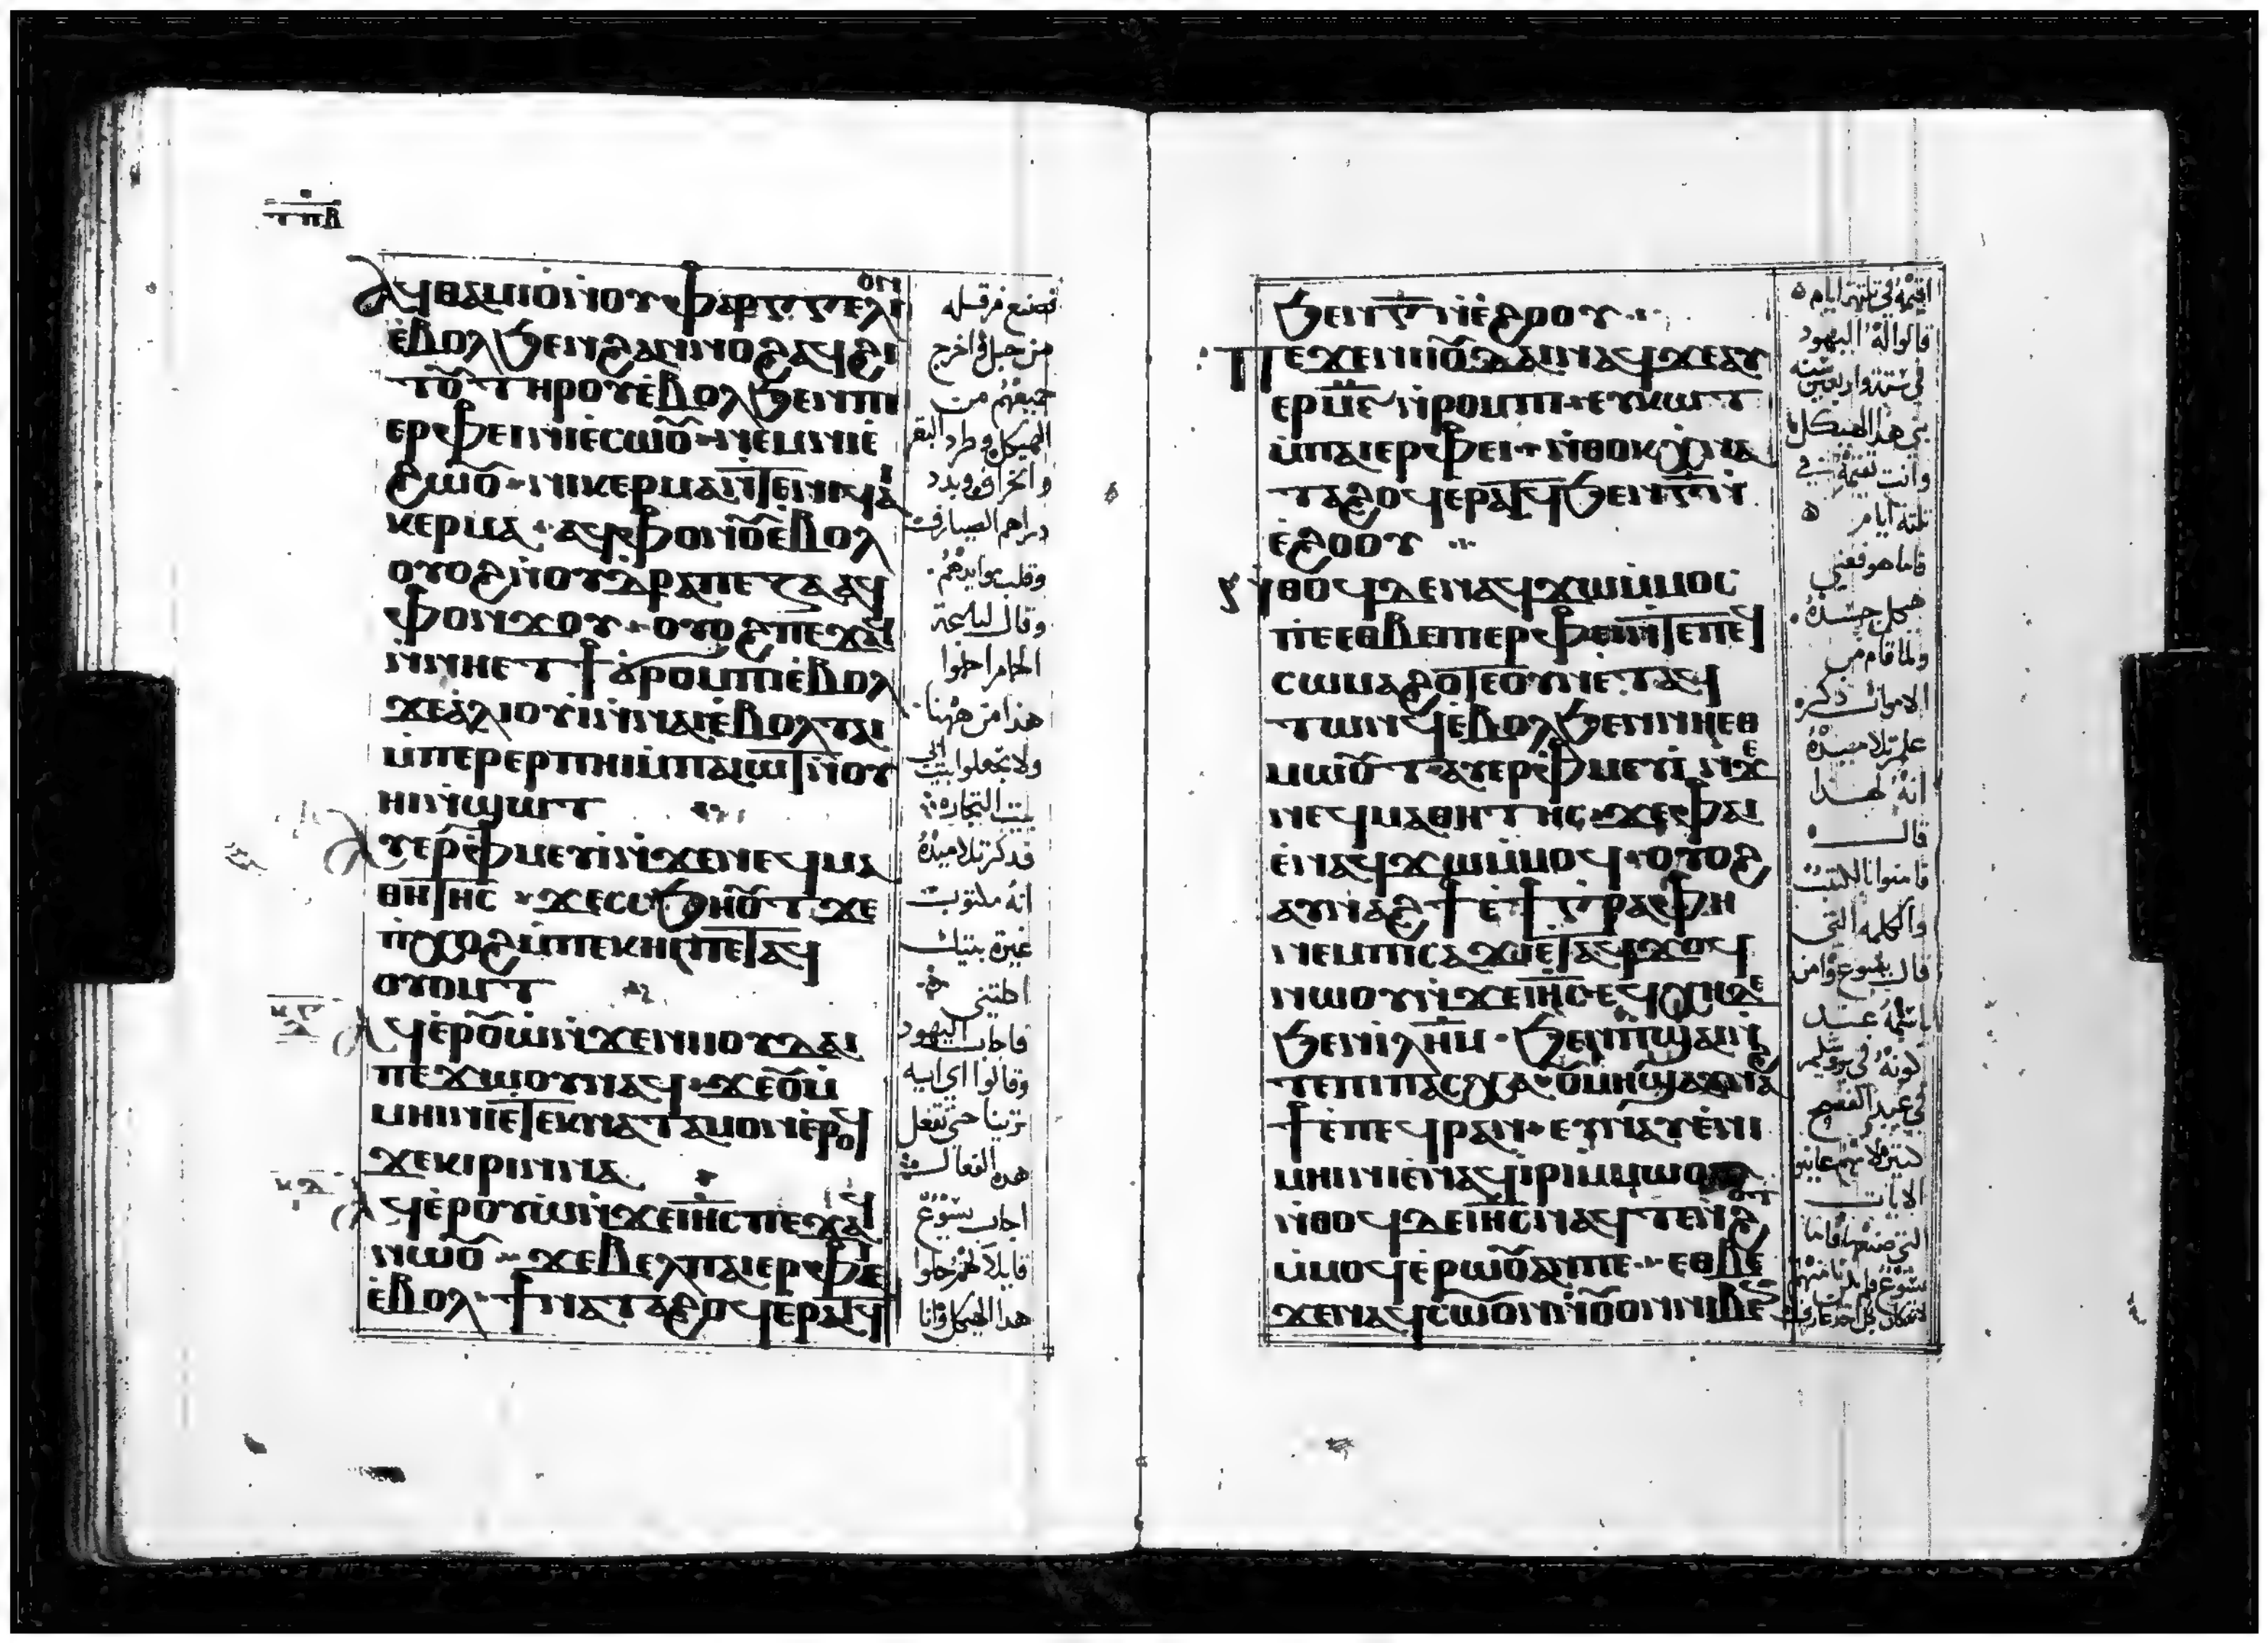 ⲧⲡⲃ
ⲁϥⲑⲁⲙⲓⲟⲛⲟⲩⲫⲁⲣⲅⲅⲉⲗⲓⲟⲛ
ⲉⲃⲟⲗϧⲉⲛϩⲁⲛⲛⲟϩⲁϥϩⲓ
ⲧⲟⲩ̄ⲧⲏⲣⲟⲩⲉⲃⲟⲗϧⲉⲛⲡⲓ
ⲉⲣⲫⲉⲓⲛⲓⲉⲥⲱⲟⲩ̄ ⲛⲉⲙⲛⲓⲉ
ϩⲱⲟⲩ̄ ⲛⲓⲕⲉⲣⲙⲁⲛⲧⲉⲛⲓϥⲁⲓ
ⲕⲉⲣⲙⲁ ⲁϥⲫⲟⲛⲟⲩ̄ⲉⲃⲟⲗ
ⲟⲩⲟϩⲛⲟⲩⲇⲣⲁⲡⲉⲍⲁⲁϥ
ⲫⲟⲛϫⲟⲩ ⲟⲩⲟϩⲡⲉϫⲁϥ
ⲛⲛⲏⲉⲧϯϭⲣⲟⲙⲡⲓⲉⲃⲟⲗ
ϫⲉⲁⲗⲓⲟⲩⲓⲛⲛⲁⲓⲉⲃⲟⲗⲧⲁⲓ
ⲙⲡⲉⲣⲉⲣⲡⲏⲓⲙⲡⲁⲓⲱⲧⲛⲟⲩ
ⲏⲓⲛϣⲱⲧ
ⲁⲩⲉⲣⲫⲙⲉⲩⲓⲛϫⲉⲛⲉϥⲙⲁ
ⲑⲏⲧⲏⲥ ϫⲉⲥⲥϧⲏⲟⲩ̄ⲧϫⲉ
ⲡⲭⲟϩⲙⲡⲉⲕⲏⲓⲡⲉⲧⲁϥ
ⲟⲩⲟⲙⲧ
ⲕⲅ
ⲁϥⲉⲣⲟⲩ̄ⲱⲛϫⲉⲛⲓⲓⲟⲩⲇⲁⲓ
ⲡⲉϫⲱⲟⲩⲛⲁϥ ϫⲉⲟⲩ̄ⲙ
ⲙⲏⲓⲛⲓⲉⲧⲉⲕⲛⲁⲧⲁⲙⲟⲛⲉⲣⲟϥ
ϫⲉⲕⲓⲣⲓⲛⲛⲁⲓ
ⲕⲇ
ⲁϥⲉⲣⲟⲩⲱⲛϫⲉⲓⲏⲥⲡⲉϫⲁϥ
ⲛⲱⲟⲩ̄ ϫⲉⲃⲉⲗⲡⲁⲓⲉⲣⲫⲉⲓ
ⲉⲃⲟⲗ ϯⲛⲁⲧⲁϩⲟϥⲉⲣⲁⲧϥ
فصنع مرقله
من حبل واخرج
جميعهم من
الهيكل وطرد البقر
والخراف وبدد
دراهم الصيارفه
وقلب موايدهم
وقال لبايعة
الحمام احملوا
هذا من ههنا
ولا تجعلوا بيت ابي
بيت التجاره
فدكر تلاميده
انه مكتوب
غيرة بيتك
اكلتني
فاجاب اليهود
وقالوا اي ايه
ترينا حتى تفعل
هده الفعال
اجاب يسوع
قايلا لهم حلوا
هدا الهيكل وانا
ϧⲉⲛⲅ̄ⲛⲉϩⲟⲟⲩ
ⲡⲉϫⲉⲛⲓⲓⲟⲩ̄ⲇⲁⲓⲛⲁϥϫⲉⲁⲩ
ⲉⲣⲙ̄ⲋⲛⲣⲟⲙⲡⲓ ⲉⲩⲕⲱⲧ
ⲙⲡⲁⲓⲉⲣⲫⲉⲓ ⲛⲑⲟⲕⲭⲛⲁ
ⲧⲁϩⲟϥⲉⲣⲁⲧϥϧⲉⲛⲅ̄ⲛ
ⲉϩⲟⲟⲩ
ⲛⲑⲟϥⲇⲉⲛⲁϥϫⲱⲙⲙⲟⲥ
ⲡⲉⲉⲑⲃⲉⲡⲓⲉⲣⲫⲉⲓⲛⲧⲉⲡⲉϥ
ⲥⲱⲙⲁϩⲟⲧⲉⲟⲩⲛⲉⲧⲁϥ
ⲧⲱⲛϥⲉⲃⲟⲗϧⲉⲛⲛⲏⲉⲑ
ⲙⲱⲟⲩ̄ⲧⲁⲩⲉⲣⲫⲙⲉⲩⲓⲛϫⲉ
ⲛⲉϥⲙⲁⲑⲏⲧⲏⲥ ϫⲉⲫⲁⲓ
ⲉⲛⲁϥϫⲱⲙⲙⲟϥ ⲟⲩⲟϩ
ⲁⲩⲛⲁϩϯⲉϯⲅⲣⲁⲫⲏ
ⲛⲉⲙⲡⲓⲥⲁϫⲓⲉⲧⲁϥϫⲟϥ
ⲛⲱⲟⲩⲛϫⲉⲓⲏⲥ ⲉϥⲭⲏⲇⲉ
ϧⲉⲛⲓⲗⲏⲙ ϧⲉⲛⲡϣⲁⲓⲛ
ⲧⲉⲡⲓⲡⲁⲥⲭⲁ ⲟⲩ̄ⲙⲏϣⲁⲩⲛⲁϩ
ϯⲉⲡⲉϥⲣⲁⲛ ⲉⲩⲛⲁⲩⲉⲛⲓ
ⲙⲏⲓⲛⲓⲉⲛⲁϥⲓⲣⲓⲙⲙⲱⲟⲩ
ⲛⲑⲟϥⲇⲉⲓⲏⲥⲛⲁϥⲧⲉⲛϩⲟⲩⲧ
ⲙⲙⲟϥⲉⲣⲱⲟⲩ̄ⲁⲛⲡⲉ ⲉⲑⲃⲉ
ϫⲉⲛⲁϥⲥⲱⲟⲩ̄ⲛⲛⲟⲩ̄ⲟⲛⲛⲓⲃⲉⲛ
اقيمه في ثلثة ايام
قالوا له اليهود
في ستة واربعين سنه
بني هدا الهيكل
وانت تقيمه في
ثلثة ايام
فاما هو فعني
هيكل جسده
ولما قام من
الاموات دكر
تلاميده
انه لهدا
قال
فامنوا بالكتب
والكلمه التي
قال يسوع وامن
باسمه
كونه في يروشليم
في عيد الفصح
كثير لانهم عاينوا
الايات
التي صنعها فاما